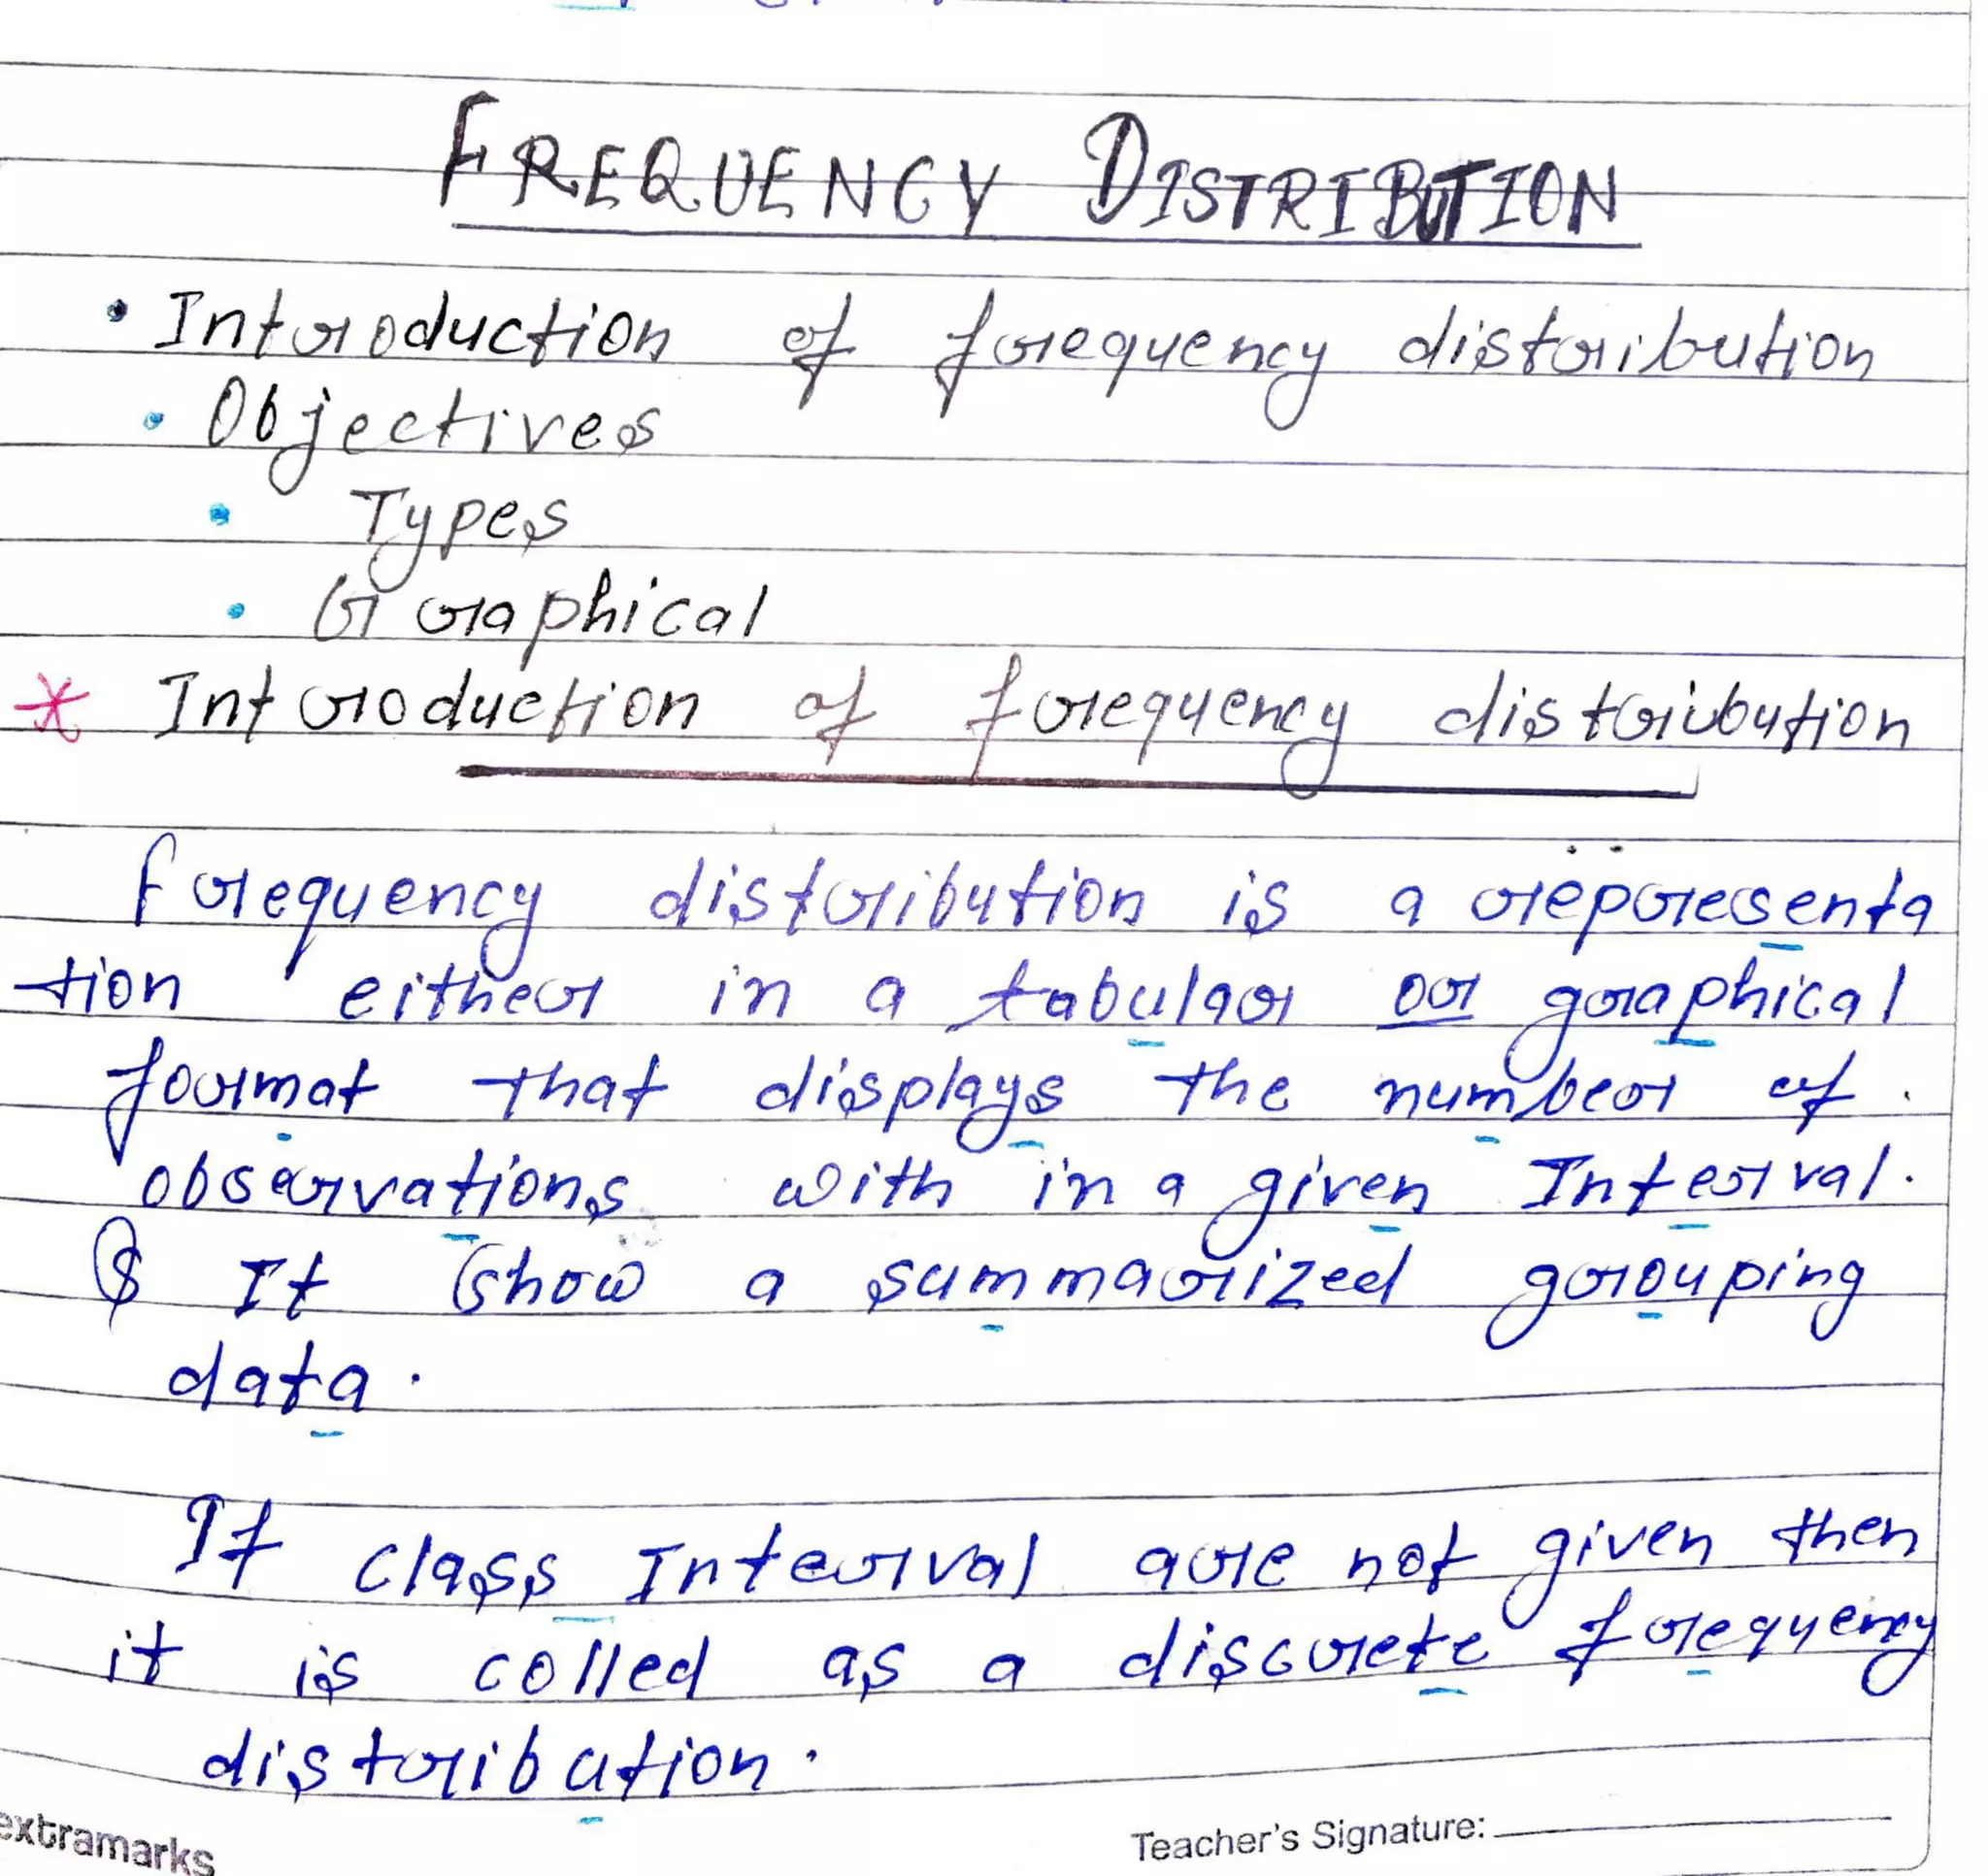 FREQUENCY DISTRIBUTION
• Introduction of frequency distribution
• Objectives
• Types
• Graphical
* Introduction of frequency distribution
Frequency distribution is a representa
tion either in a tabular or graphical
format that displays the number of
observations with in a given Interval.
& It show a summarized grouping
data.
If class Interval are not given then
it is colled as a discrete frequency
distribution.
extramarks
Teacher's Signature: